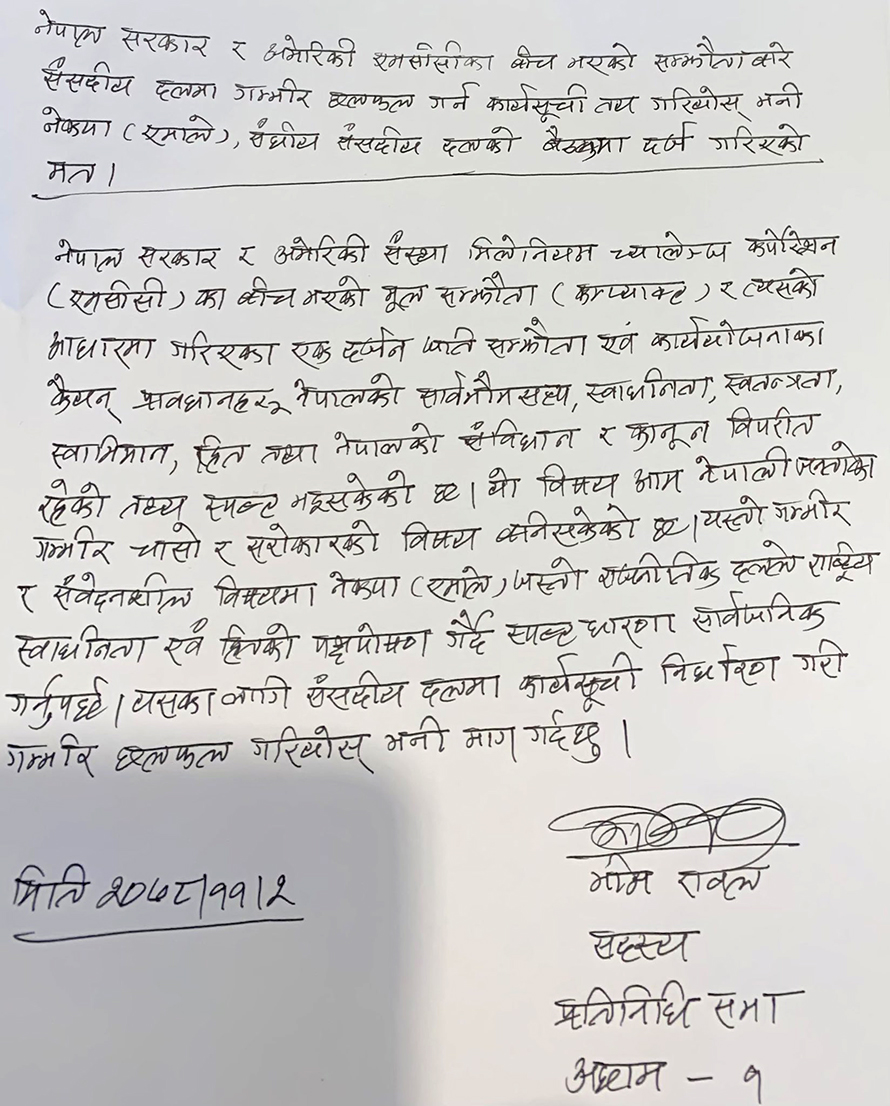 नेपाल सरकार र अमेरिकी एमसीसीका बीच भएको सम्झौता बारे
संसदीय दलमा गम्भीर छलफल गर्न कार्यसूची तय गरियोस् भनी
नेकपा (एमाले), संघीय संसदीय दलको बैठकमा दर्ज गरिएको
मत।
नेपाल सरकार र अमेरिकी संस्था मिलेनियम च्यालेन्ज कर्पोरेशन
(एमसीसी) का बीच भएको मूल सम्झौता (कम्प्याक्ट) र त्यसको
आधारमा गरिएका एक दर्जन जति सम्झौता एवं कार्ययोजनाका
कैयन् प्रावधानहरू नेपालको सार्वभौमसत्ता, स्वाधिनता, स्वतन्त्रता,
स्वाभिमान, हित तथा नेपालको संविधान र कानून विपरीत
रहेको तथ्य स्पष्ट भइसकेको छ। यो विषय आम नेपाली जनताको
गम्भीर चासो र सरोकारको विषय बनिसकेको छ। यस्तो गम्भीर
र संवेदनशील विषयमा नेकपा (एमाले) जस्तो राजनीतिक दलले राष्ट्रिय
स्वाधिनता एवं हितको पक्षपोषण गर्दै स्पष्ट धारणा सार्वजनिक
गर्नुपर्छ। यसका लागि संसदीय दलमा कार्यसूची निर्धारण गरी
गम्भीर छलफल गरियोस् भनी माग गर्दछु।
भीम रावल
मिति २०७८।११।२
सदस्य
प्रतिनिधि सभा
अछाम - १